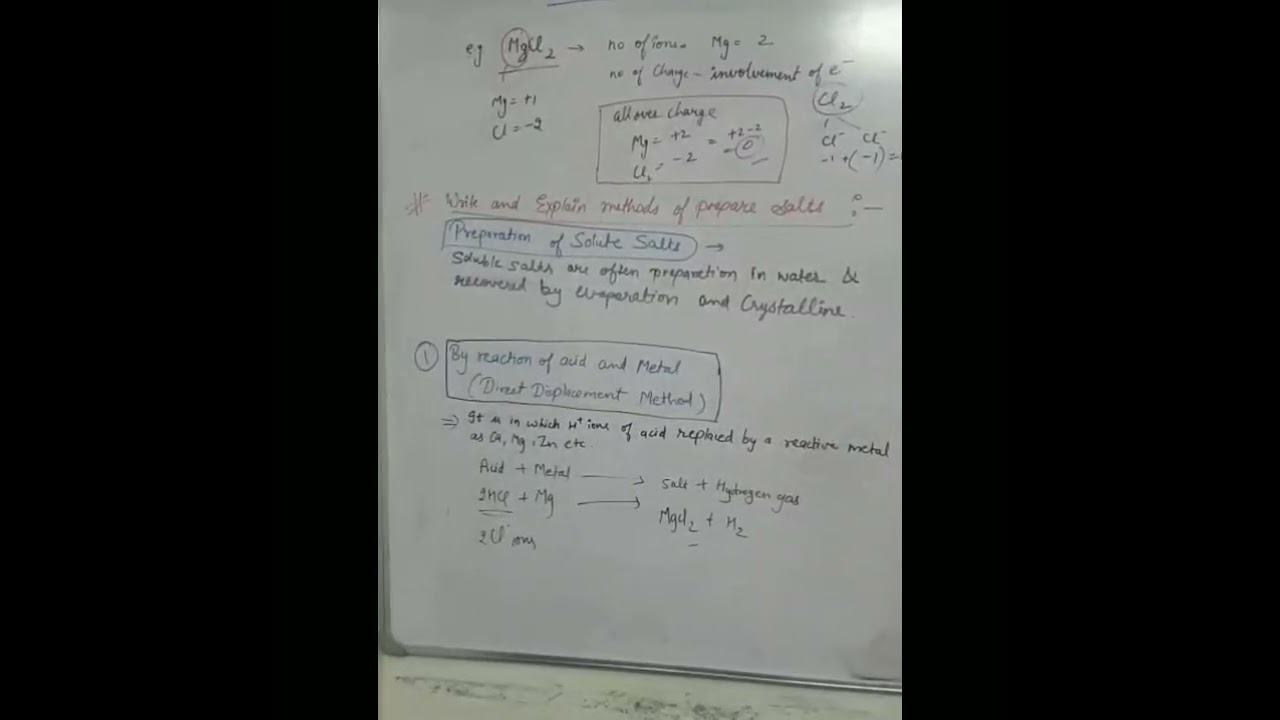 e.g MgCl2 → no of ions. Mg = 2
no of Charge - involvement of e⁻
Mg = +1
Cl = -2
all over charge
Mg = +2 = +2-2
Cl2 = -2 = 0
Cl2
Cl⁻ Cl⁻
-1 + (-1) =
# Write and Explain methods of prepare salts :-
Preparation of Solute Salts →
Soluble salts are often preparation in water &
recovered by evaporation and Crystalline.
① By reaction of acid and Metal
(Direct Displacement Method)
⇒ It is in which H⁺ ions of acid replaced by a reactive metal
as Ca, Mg, Zn etc.
Acid + Metal → Salt + Hydrogen gas
2HCl + Mg → MgCl2 + H2
2Cl⁻ ions